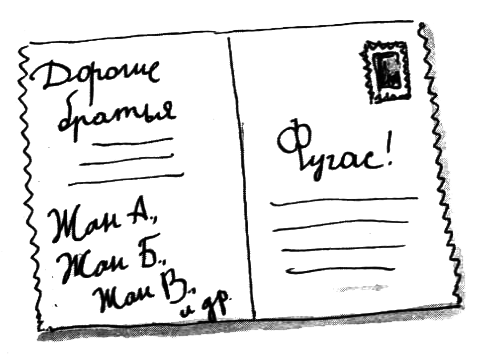 Дорогие
братья
Жан А.,
Жан Б.,
Жан В.,
и др.
Фугас!